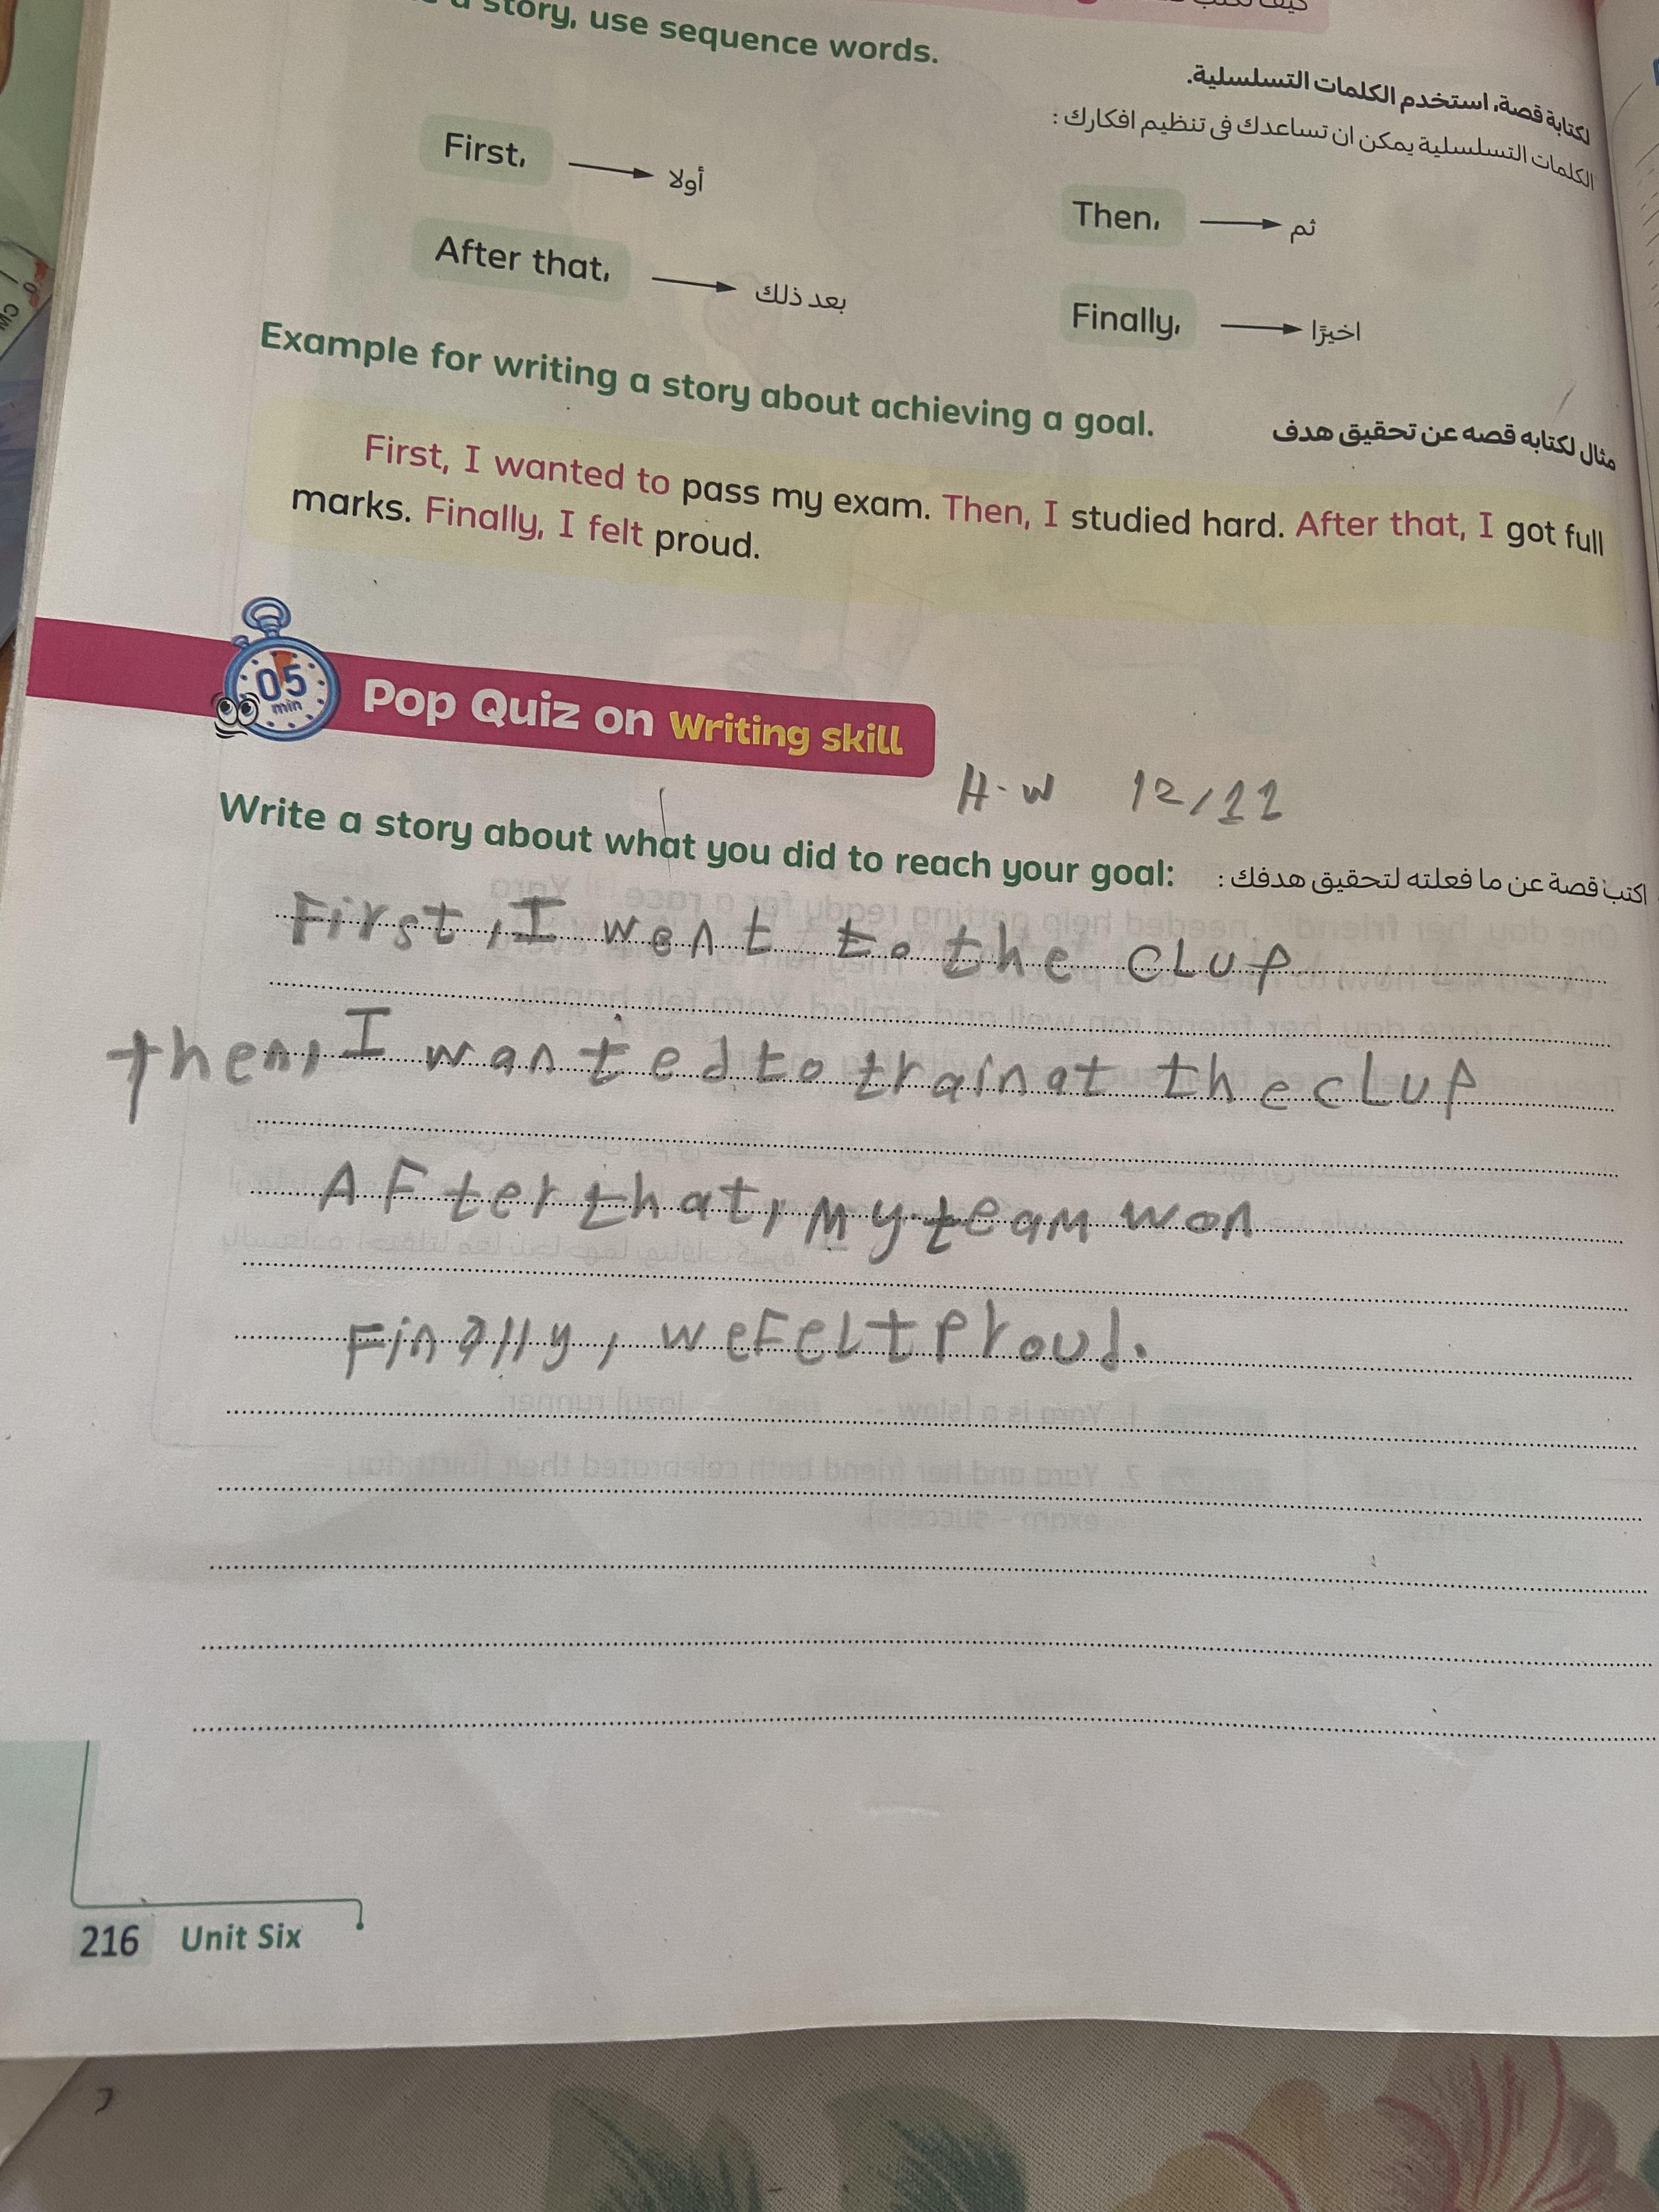 a story, use sequence words.
لكتابة قصة، استخدم الكلمات التسلسلية.
الكلمات التسلسلية يمكن ان تساعدك فى تنظيم افكارك :
First, أولا
Then, ثم
After that, بعد ذلك
Finally, اخيرًا
Example for writing a story about achieving a goal.
مثال لكتابه قصه عن تحقيق هدف
First, I wanted to pass my exam. Then, I studied hard. After that, I got full
marks. Finally, I felt proud.
05
min
Pop Quiz on Writing skill
H-W 12/11
Write a story about what you did to reach your goal: اكتب قصة عن ما فعلته لتحقيق هدفك :
First, I went to the cLup
then, I wanted to train at the cLup
AFter that, My team won
Finally, we FeLt Proud.
216 Unit Six